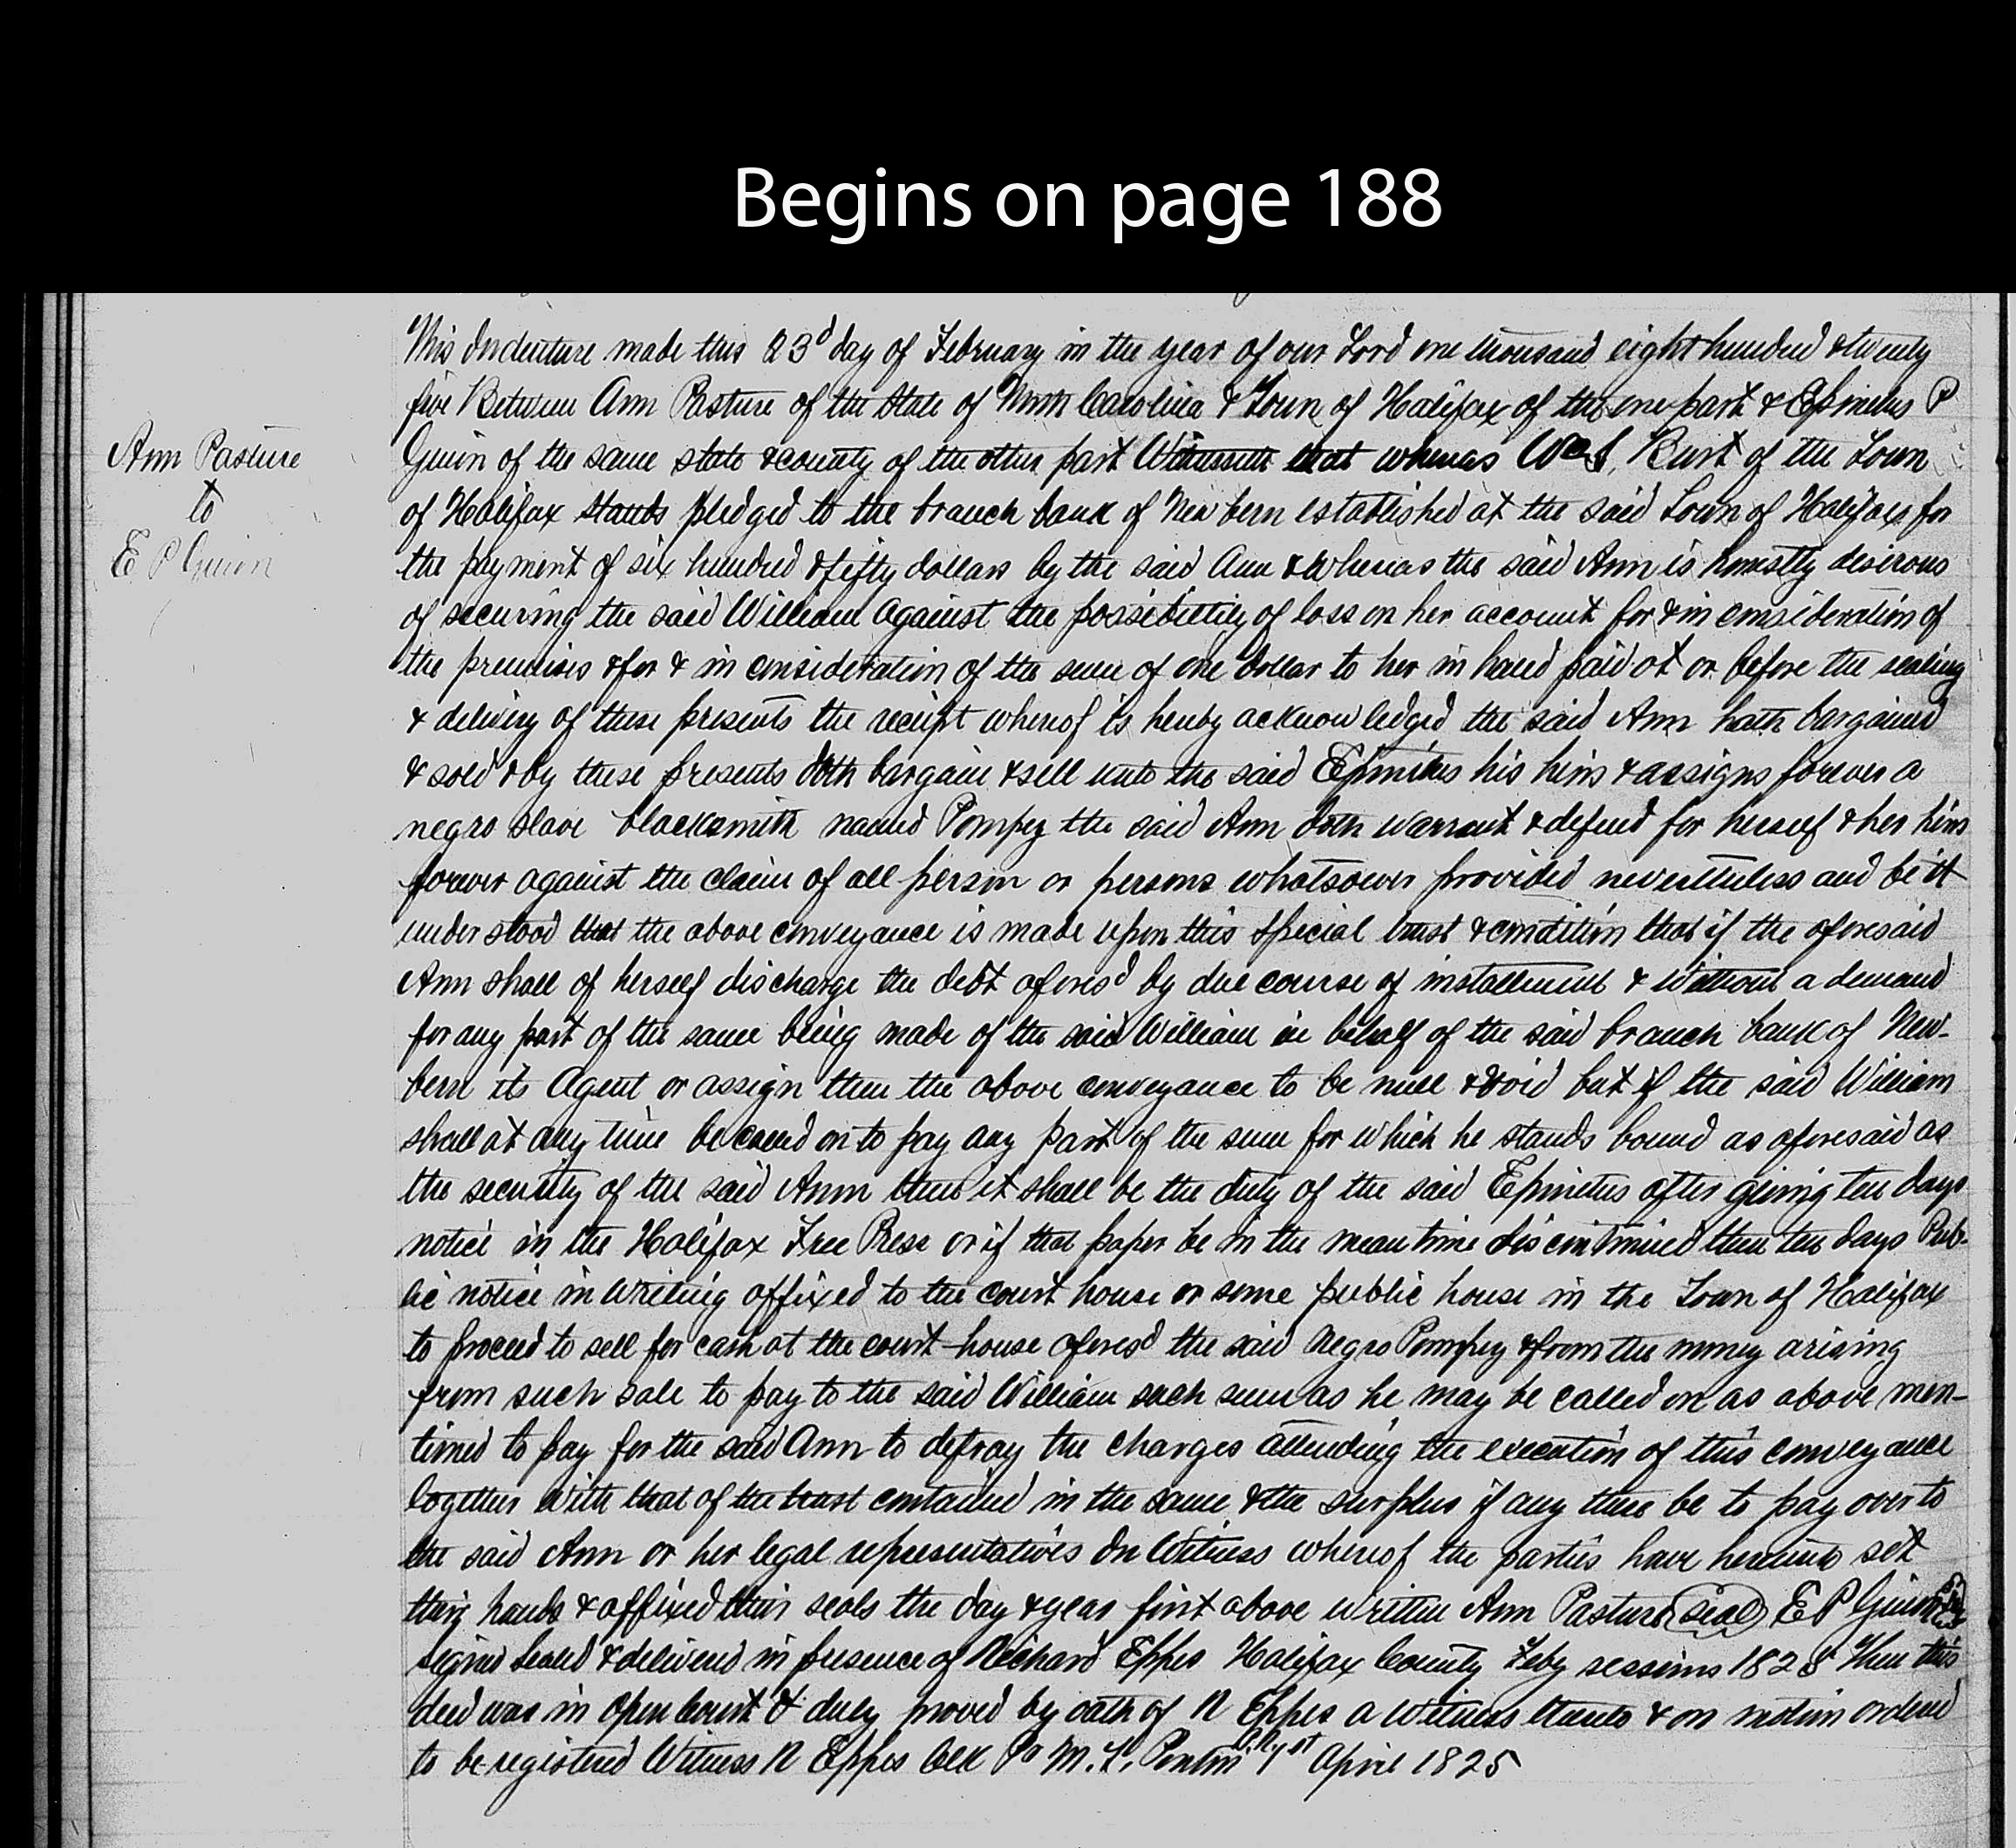 Begins on page 188
This Indenture made this 23d day of February in the year of our Lord one thousand eight hundred & twenty
five Between Ann Pasture of the State of North Carolina & Town of Halifax of the one part & Epinetus P
Ann Pasture
to
E P Guion
Guion of the same state & county of the other part Witnesseth that whereas Burt of the Town
of Halifax stands pledged to the branch bank of New bern established at the said Town of Halifax for
the payment of six hundred & fifty dollars by the said Ann & Whereas the said Ann is honestly desirous
of securing the said William against the possibility of loss on her account for & in consideration of
the premises & for & in consideration of the sum of one dollar to her in hand paid at or before the sealing
& delivery of these presents the receipt whereof is hereby acknowledged the said Ann hath bargained
& sold & by these presents doth bargain & sell unto the said Epinetus his heirs & assigns forever a
negro slave blacksmith named Pompey the said Ann doth warrant & defend for herself & her heirs
forever against the claim of all person or persons whatsoever provided nevertheless and be it
understood that the above conveyance is made upon this special trust & condition that if the aforesaid
Ann shall of herself discharge the debt aforesd by due course of installment & without a demand
for any part of the same being made of the said William in behalf of the said branch bank of New-
bern its Agent or assign then the above conveyance to be null & void but if the said William
shall at any time be called on to pay any part of the sum for which he stands bound as aforesaid as
the security of the said Ann then it shall be the duty of the said Epinetus after giving ten days
notice in the Halifax Free Press or if that paper be in the meantime discontinued then ten days Pub-
lic notice in writing affixed to the court house or some public house in the Town of Halifax
to proceed to sell for cash at the court-house aforesd the said Negro Pompey & from the money arising
from such sale to pay to the said William such sum as he may be called on as above men-
tioned to pay for the said Ann to defray the charges attending the execution of this conveyance
together with that of the trust contained in the same & the surplus if any there be to pay over to
the said Ann or her legal representatives In Witness whereof the parties have hereunto set
their hands & affixed their seals the day & year first above written Ann Pasture seal E P Guion seal
signed sealed & delivered in presence of Richard Eppes Halifax County Feby sessions 1825 Then this
deed was in open Court & duly proved by oath of R Eppes a Witness thereto & on motion ordered
to be registered Witness R Eppes Clk 1st April 1825